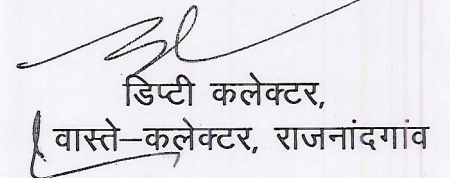 डिप्टी कलेक्टर,
वास्ते–कलेक्टर, राजनांदगांव